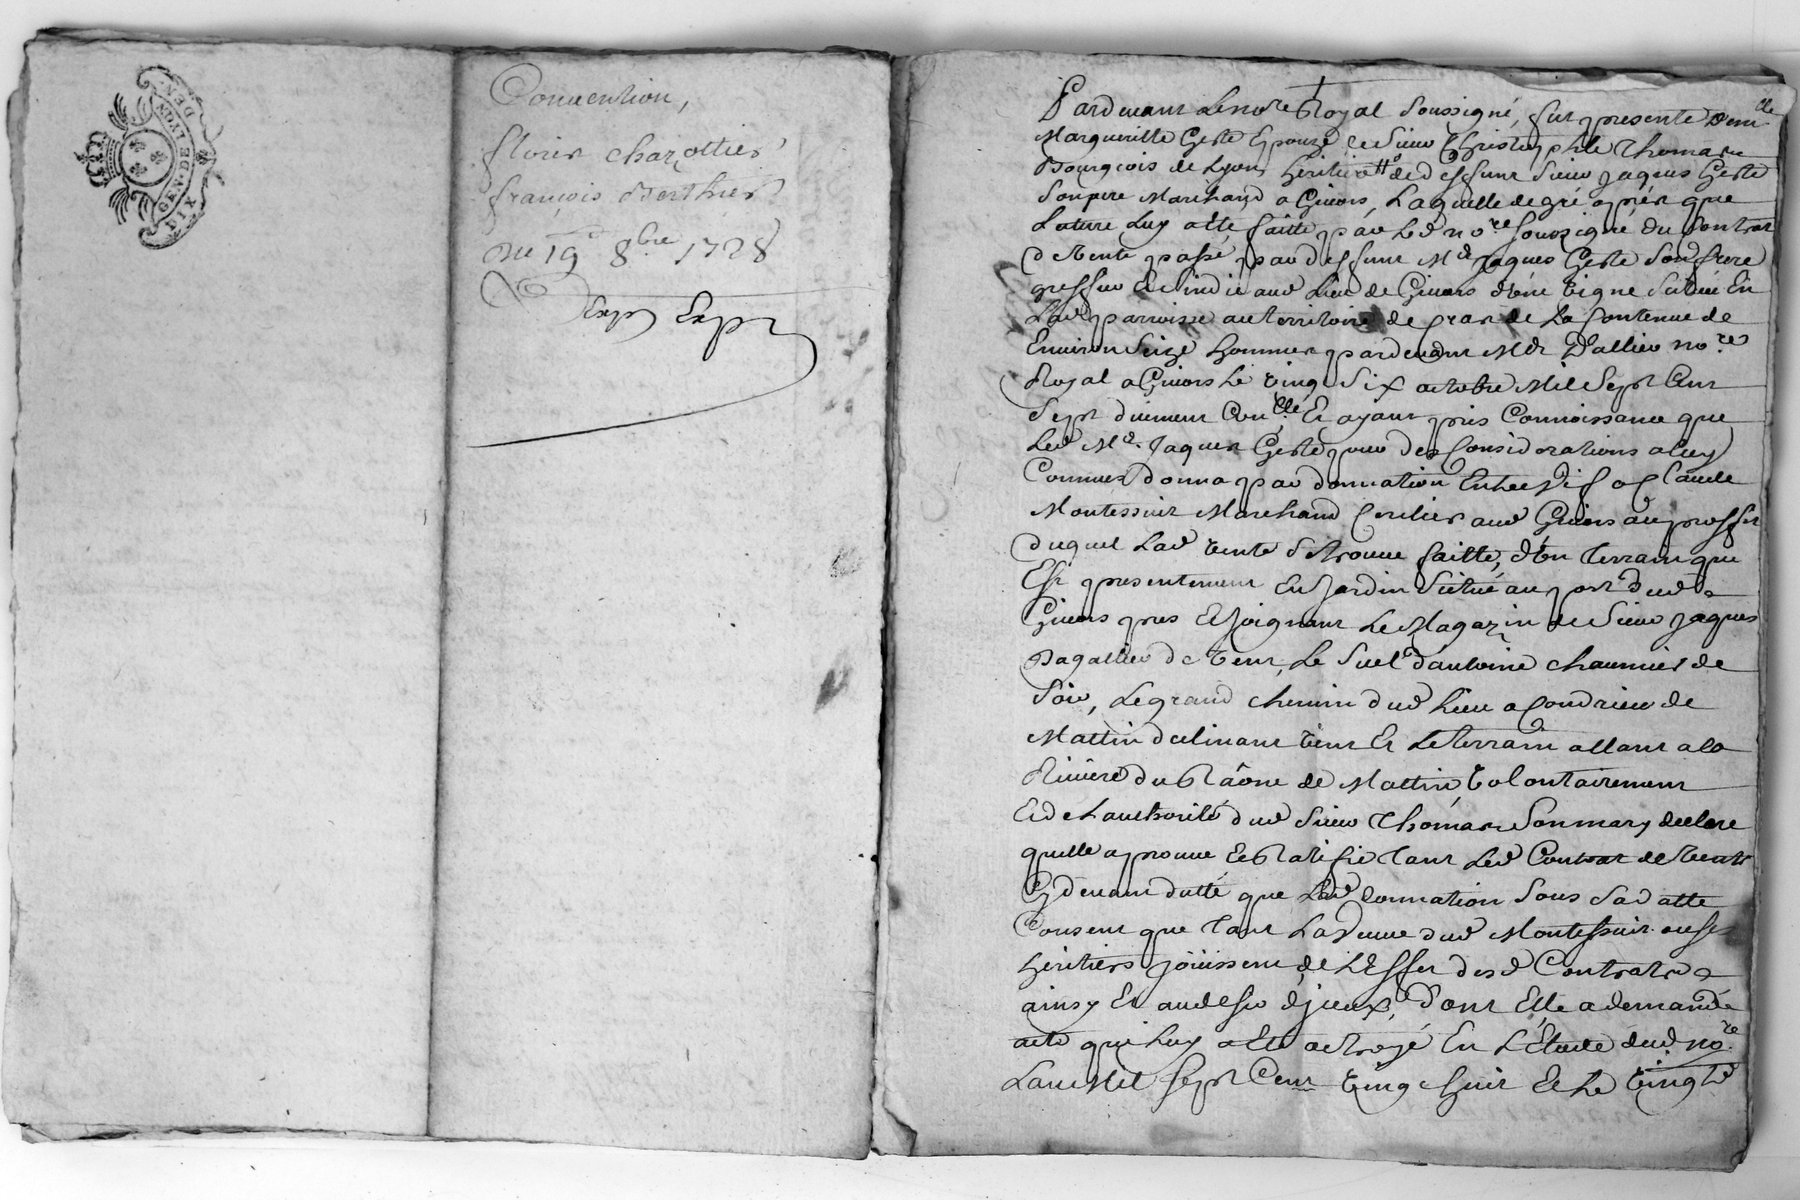 GEN. DE LYON
DIX DEN.
Convention,
florin charottier
françois Berthier
du 19 8bre 1728
Exp Exp
Pardevant Le nore Royal Soussigné, fut presente Demlle
Margueritte Geste Epouze de Sieur Christophle Thomas
Bourgeois de Lyon heritiere de deffunt Sieur Jaques Geste
Son pere Marchand a Givors, Laquelle de gré apres que
Lature Luy a ete faitte par Led nore soussigné du Contrat
de Vente passé par deffunt Me Jaques Geste Son frere
greffier Et Sindic aud Lieu de Givors d'une vigne Scituée En
Lad parroisse au territoire de gras de La Contenue de
Environ Seize hommes pardevant Me Dallier nore
Royal a Givors Le vingt Six octobre Mil Sept Cent
Sept duement Conllé Et ayant pris Connoissance que
Led Me. Jaques Geste pour des Considerations a luy
Connues donna par donnation Entre Vif a Claude
Montessuit Marchand aud Givors au proffit
duquel Lad vente Se trouve faitte, d'un Terrain qui
Est presentement En Jardin Scitué au port dud
Givors pres Et Joignant Le Magazin de Sieur Jaques
Dagallier de vent, Le Suel d'antoine chaumier de
Soir, Le grand chemin dud Lieu a Condrieu de
Mattin declinant vent Et Le terrain allant a la
Riviere du Rhâone de Mattin, volontairement
Et de Lauthorité dud Sieur Thomas Son mary declare
quelle aprouve Et Ratifie tant Led Contrat de Vente
Cy devant datté que Lad donnation Sous Sad datte
Consent que tant La Veuve dud Montessuit ou Ses
heritiers joüissent de L'Effet desd Contrats
ainsy Et audesir d'jceux, dont Elle a demandé
acte qui Luy a ete octroyé En L'Etude dud nore
Lan Mil Sept Cent vingt huit Et Le vingte